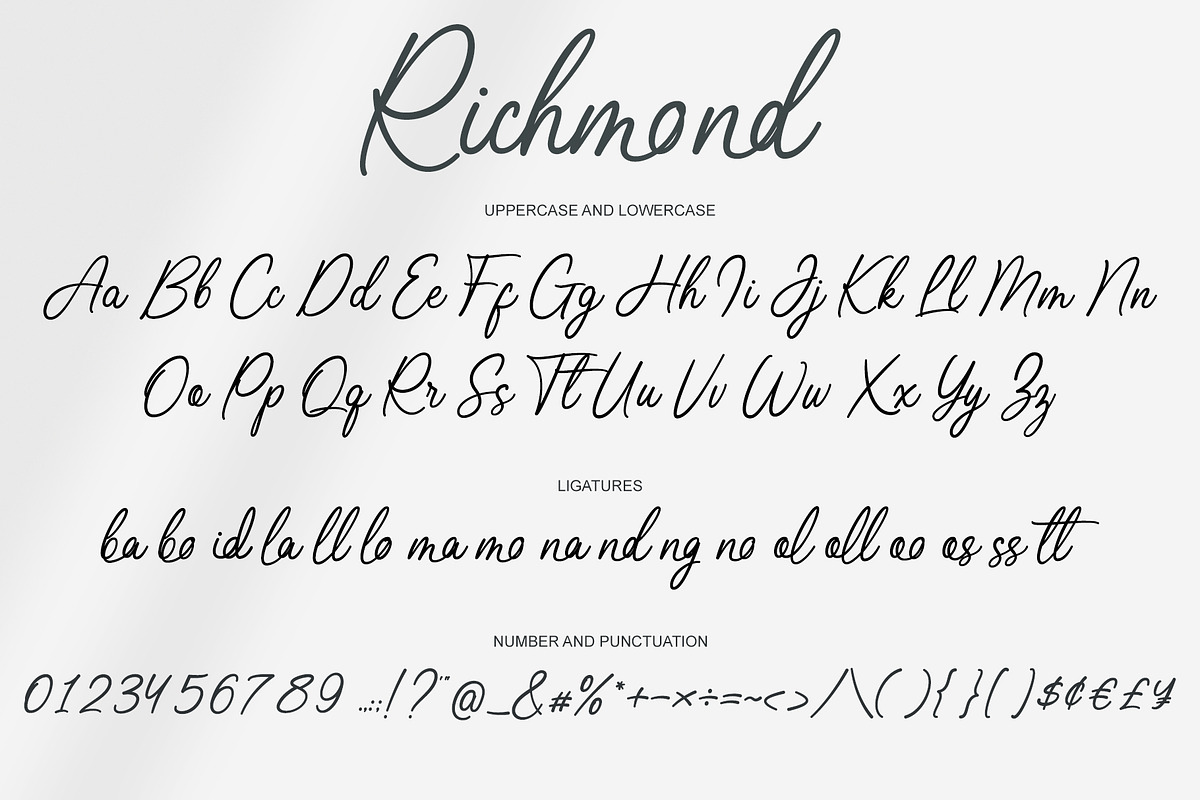 Richmond
UPPERCASE AND LOWERCASE
Aa Bb Cc Dd Ee Ff Gg Hh Ii Jj Kk Ll Mm Nn
Oo Pp Qq Rr Ss Tt Uu Vv Ww Xx Yy Zz
LIGATURES
ba bo id la ll lo ma mo na nd ng no ol oll oo os ss tt
NUMBER AND PUNCTUATION
0123456789 .,:;!?'"@_&#%*+−×÷=~<>/\(){}[]$¢€£¥